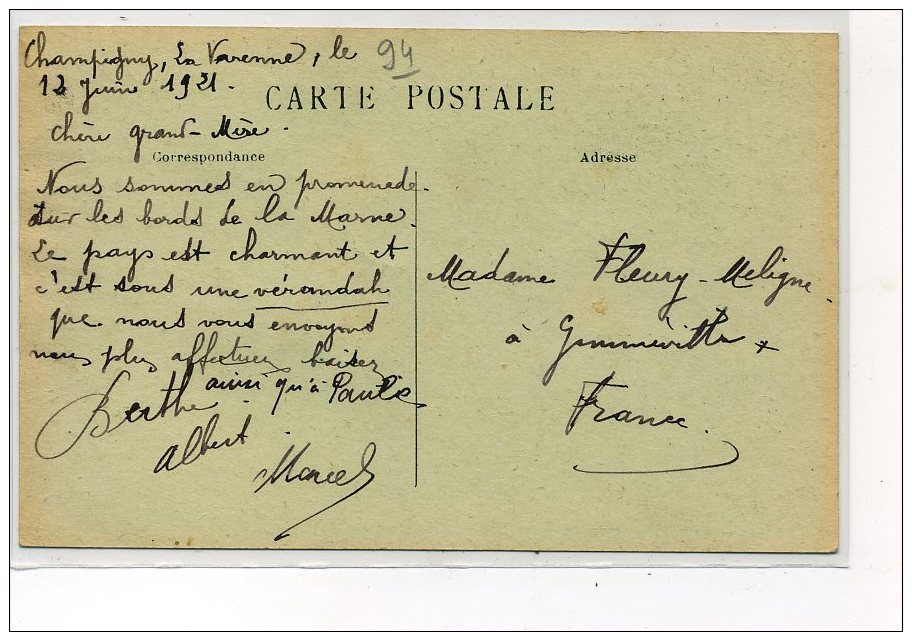 Champigny, La Varenne, le 94
12 Juin 1921.
CARTE POSTALE
Chère grand-Mère.
Correspondance
Nous sommes en promenade
sur les bords de la Marne.
Le pays est charmant et
c'est sous une vérandah
que nous vous envoyons
nos plus affectueux baisers
ainsi qu'à Paulie
Berthe
Albert.
Marcel
Adresse
Madame Fleury-Meligne
à
France.